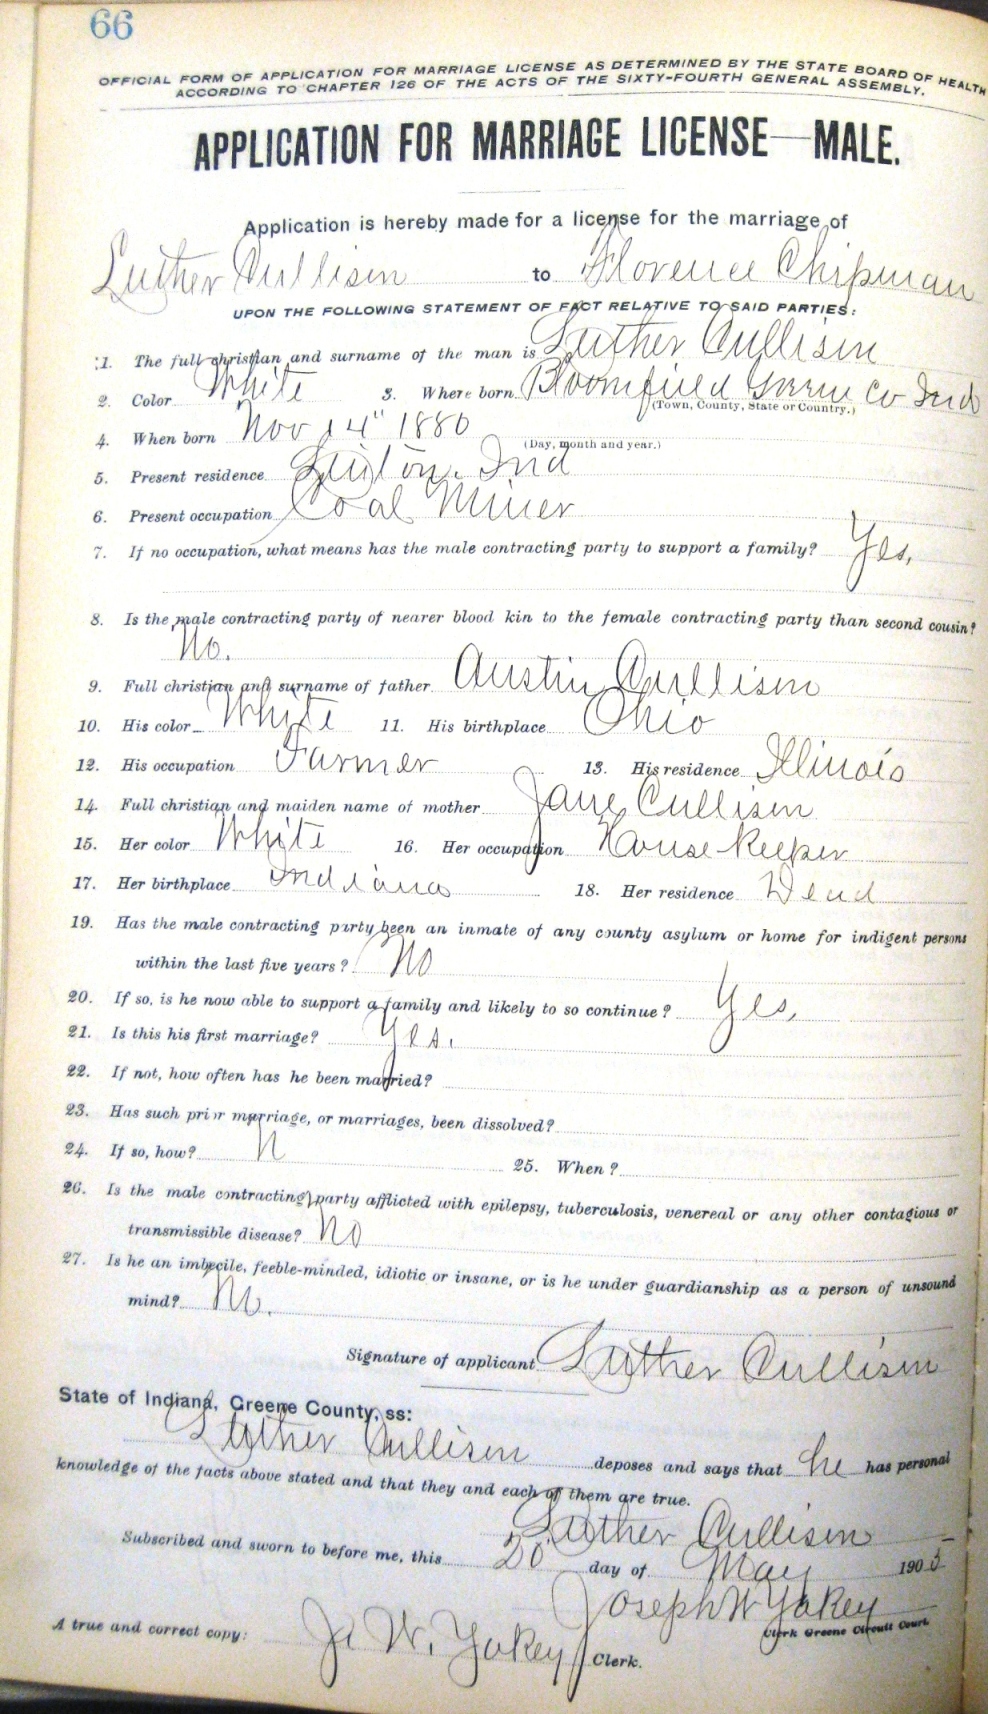 66
OFFICIAL FORM OF APPLICATION FOR MARRIAGE LICENSE AS DETERMINED BY THE STATE BOARD OF HEALTH
ACCORDING TO CHAPTER 126 OF THE ACTS OF THE SIXTY-FOURTH GENERAL ASSEMBLY.
APPLICATION FOR MARRIAGE LICENSE—MALE.
Application is hereby made for a license for the marriage of
Luther Cullison to Florence Chipman
UPON THE FOLLOWING STATEMENT OF FACT RELATIVE TO SAID PARTIES:
1. The full christian and surname of the man is Luther Cullison
2. Color White 3. Where born Bloomfield Greene Co Ind
(Town, County, State or Country.)
4. When born Nov 14" 1880
(Day, month and year.)
5. Present residence Linton, Ind
6. Present occupation Coal Miner
7. If no occupation, what means has the male contracting party to support a family? Yes,
8. Is the male contracting party of nearer blood kin to the female contracting party than second cousin?
No.
9. Full christian and surname of father Austin Cullison
10. His color White 11. His birthplace Ohio
12. His occupation Farmer 13. His residence Illinois
14. Full christian and maiden name of mother Jane Cullison
15. Her color White 16. Her occupation House Keeper
17. Her birthplace Indiana 18. Her residence Dead
19. Has the male contracting party been an inmate of any county asylum or home for indigent persons
within the last five years? No
20. If so, is he now able to support a family and likely to so continue? Yes,
21. Is this his first marriage? Yes.
22. If not, how often has he been married?
23. Has such prior marriage, or marriages, been dissolved?
24. If so, how? N 25. When?
26. Is the male contracting party afflicted with epilepsy, tuberculosis, venereal or any other contagious or
transmissible disease? No
27. Is he an imbecile, feeble-minded, idiotic or insane, or is he under guardianship as a person of unsound
mind? No.
Signature of applicant Luther Cullison
State of Indiana, Greene County, ss:
Luther Cullison deposes and says that he has personal
knowledge of the facts above stated and that they and each of them are true.
Luther Cullison
Subscribed and sworn to before me, this 20 day of May 1905
Joseph W Yakey
Clerk Greene Circuit Court
A true and correct copy: W. Yakey Clerk.